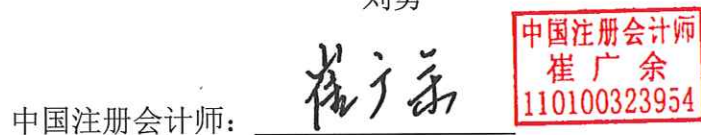 刘勇
中国注册会计师：崔广余
中国注册会计师
崔广余
110100323954